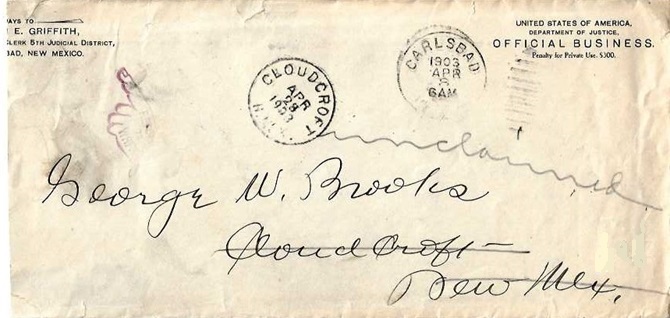 AYS TO
E. GRIFFITH,
CLERK 5TH JUDICIAL DISTRICT,
BAD, NEW MEXICO.
UNITED STATES OF AMERICA,
DEPARTMENT OF JUSTICE,
OFFICIAL BUSINESS.
Penalty for Private Use, $300.
CARLSBAD
1903
APR
8
6AM
CLOUDCROFT
APR
28
1903
N.M.
unclaimed
George W. Brooks
Cloudcroft
New Mex.